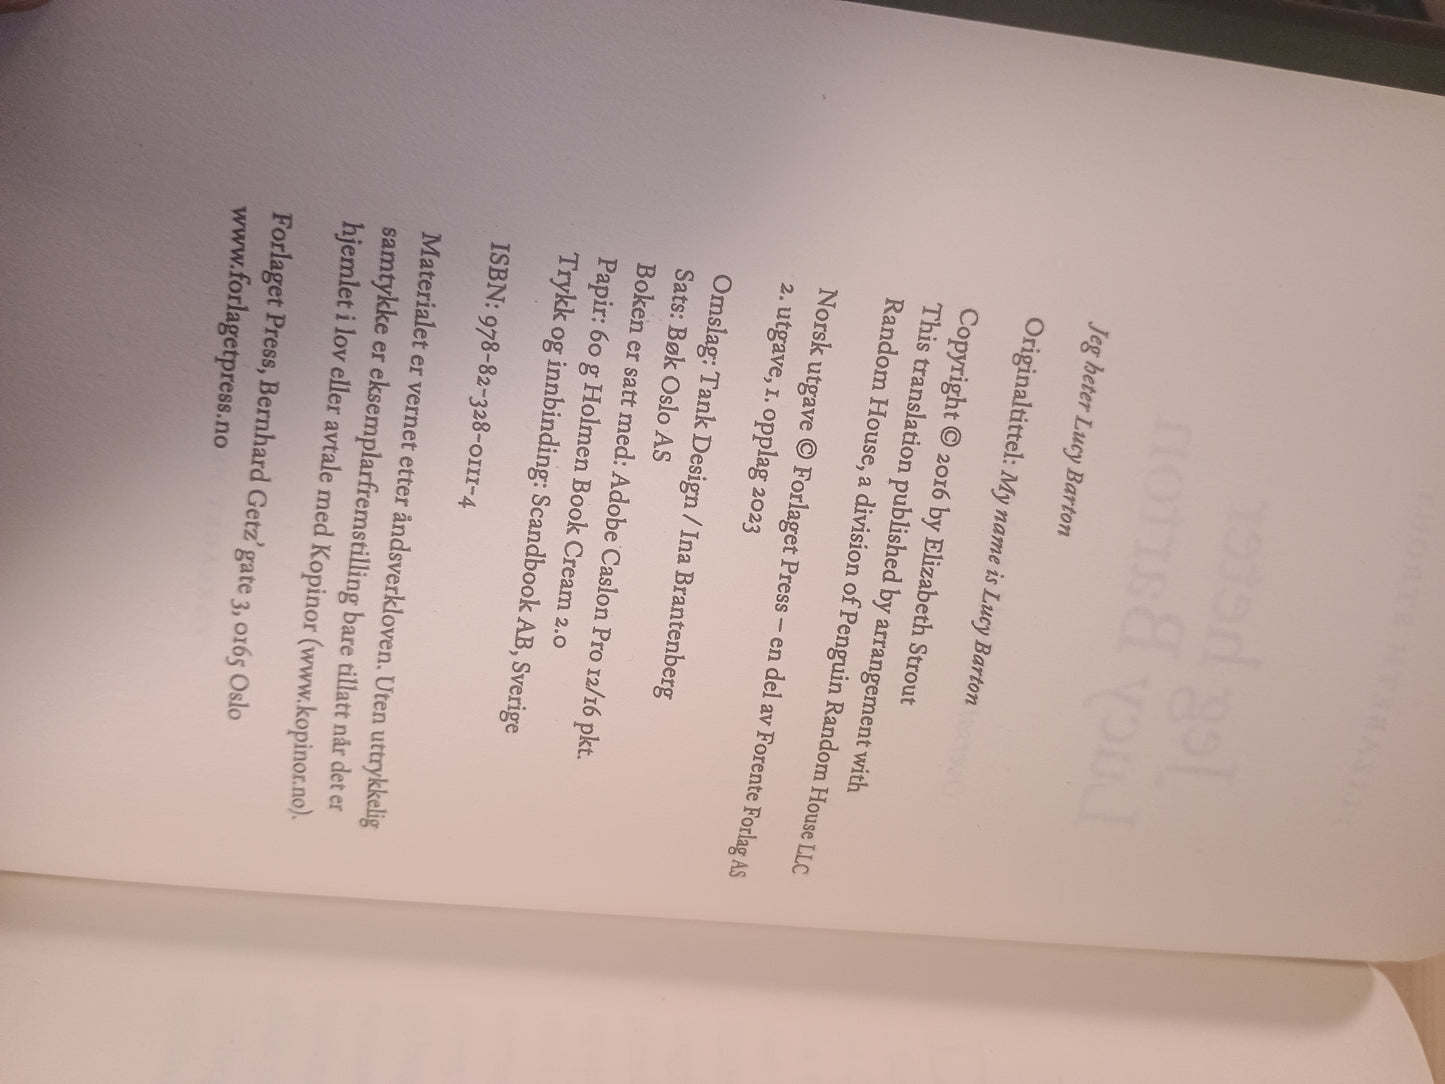 Jeg heter Lucy Barton
Originaltittel: My name is Lucy Barton
Copyright © 2016 by Elizabeth Strout
This translation published by arrangement with
Random House, a division of Penguin Random House LLC
Norsk utgave © Forlaget Press – en del av Forente Forlag AS
2. utgave, 1. opplag 2023
Omslag: Tank Design / Ina Brantenberg
Sats: Bøk Oslo AS
Boken er satt med: Adobe Caslon Pro 12/16 pkt.
Papir: 60 g Holmen Book Cream 2.0
Trykk og innbinding: Scandbook AB, Sverige
ISBN: 978-82-328-0111-4
Materialet er vernet etter åndsverkloven. Uten uttrykkelig
samtykke er eksemplarfremstilling bare tillatt når det er
hjemlet i lov eller avtale med Kopinor (www.kopinor.no).
Forlaget Press, Bernhard Getz' gate 3, 0165 Oslo
www.forlagetpress.no